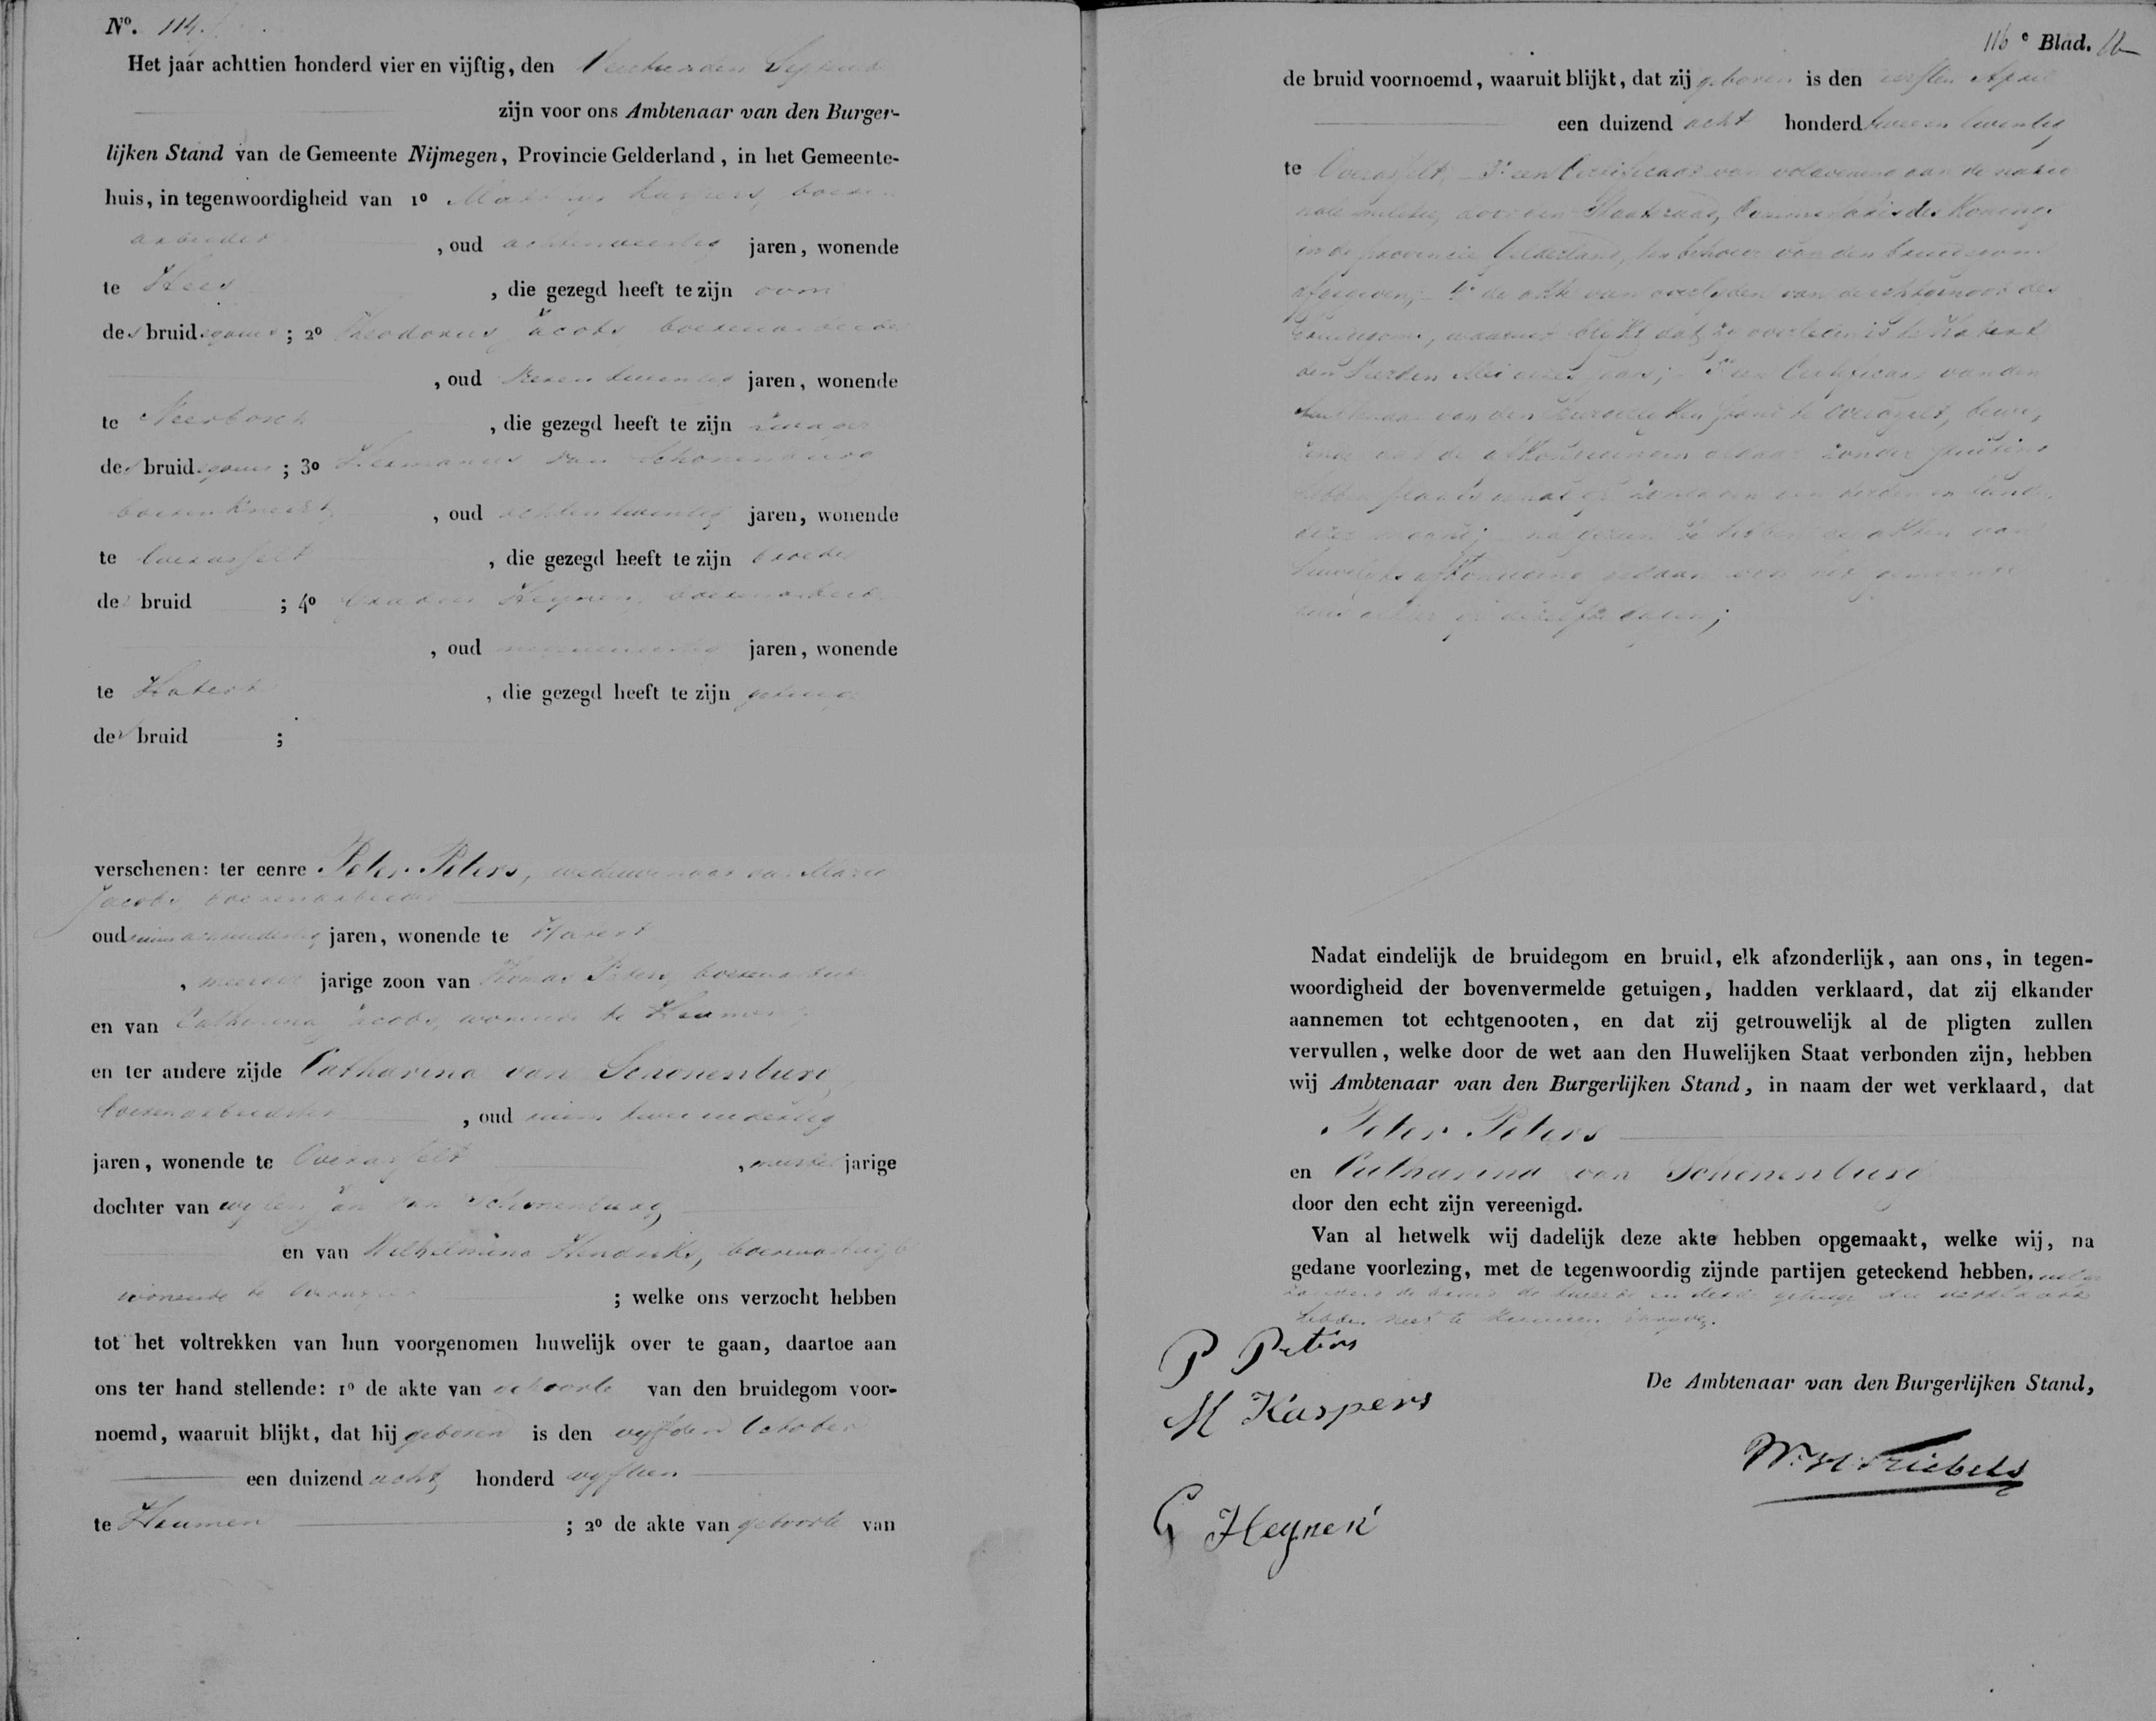 No. 114.
Het jaar achttien honderd vier en vijftig, den Veertienden September
zijn voor ons Ambtenaar van den Burger-
lijken Stand van de Gemeente Nijmegen, Provincie Gelderland, in het Gemeente-
huis, in tegenwoordigheid van 1o Kaspers, boeren
arbeider, oud achtenveertig jaren, wonende
te Hees, die gezegd heeft te zijn oom
des bruidegoms; 2o Theodorus Jacobs boerenarbeider
, oud twintig jaren, wonende
te Neerbosch, die gezegd heeft te zijn zwager
des bruidegoms; 3o Hermanus van Schonenburg
boerenknecht, oud achtentwintig jaren, wonende
te Overasselt, die gezegd heeft te zijn broeder
der bruid; 4o Heynen, boerenarbeider
, oud jaren, wonende
te Hatert, die gezegd heeft te zijn getuige
der bruid;
verschenen: ter eenre Peter Peters, weduwenaar van Maria
Jacobs, boerenarbeider
oud ruim achtendertig jaren, wonende te Hatert
, meerder jarige zoon van Thomas Peters, boerenarbeider
en van Catharina Jacobs, wonende te Heumen;
en ter andere zijde Catharina van Schonenburg
boerenarbeidster, oud ruim twee en dertig
jaren, wonende te Overasselt, meerder jarige
dochter van wijlen Jan van Schonenburg
en van Wilhelmina Hendriks,
wonende te Overasselt; welke ons verzocht hebben
tot het voltrekken van hun voorgenomen huwelijk over te gaan, daartoe aan
ons ter hand stellende: 1o de akte van geboorte van den bruidegom voor-
noemd, waaruit blijkt, dat hij geboren is den vyfden October
een duizend acht honderd vyftien
te Heumen; 2o de akte van geboorte van
116e Blad.
de bruid voornoemd, waaruit blijkt, dat zij geboren is den eersten April
een duizend acht honderd twee en twintig
te Overasselt, - 3o een Certificaat van voldoening aan de natio
nale militie, door den Staatsraad, Commissaris des Konings
in de provincie Gelderland, ten behoeve van den bruidegom
afgegeven; - 4o de akte van overlyden van de echtgenoot des
bruidegoms, waaruit blykt dat ze overleden is te Hatert
den Mei dezes jaars; - 5o een Certificaat van den
Ambtenaar van den Burgerlyken Stand te Overasselt, bewy-
zende dat de afkondigingen aldaar zonder stuiting
hebben plaats gehad op
dezer maand; - na gezien te hebben de akten van
huwelyks afkondiging gedaan voor het gemeente
huis alhier op dezelfde dagen;
Nadat eindelijk de bruidegom en bruid, elk afzonderlijk, aan ons, in tegen-
woordigheid der bovenvermelde getuigen, hadden verklaard, dat zij elkander
aannemen tot echtgenooten, en dat zij getrouwelijk al de pligten zullen
vervullen, welke door de wet aan den Huwelijken Staat verbonden zijn, hebben
wij Ambtenaar van den Burgerlijken Stand, in naam der wet verklaard, dat
Peter Peters
en Catharina van Schonenburg
door den echt zijn vereenigd.
Van al hetwelk wij dadelijk deze akte hebben opgemaakt, welke wij, na
gedane voorlezing, met de tegenwoordig zijnde partijen geteekend hebben,
de bruid de tweede en derde getuige die verklaard
hebben niet te kunnen
P Peters
M Kaspers
De Ambtenaar van den Burgerlijken Stand,
G Heynen